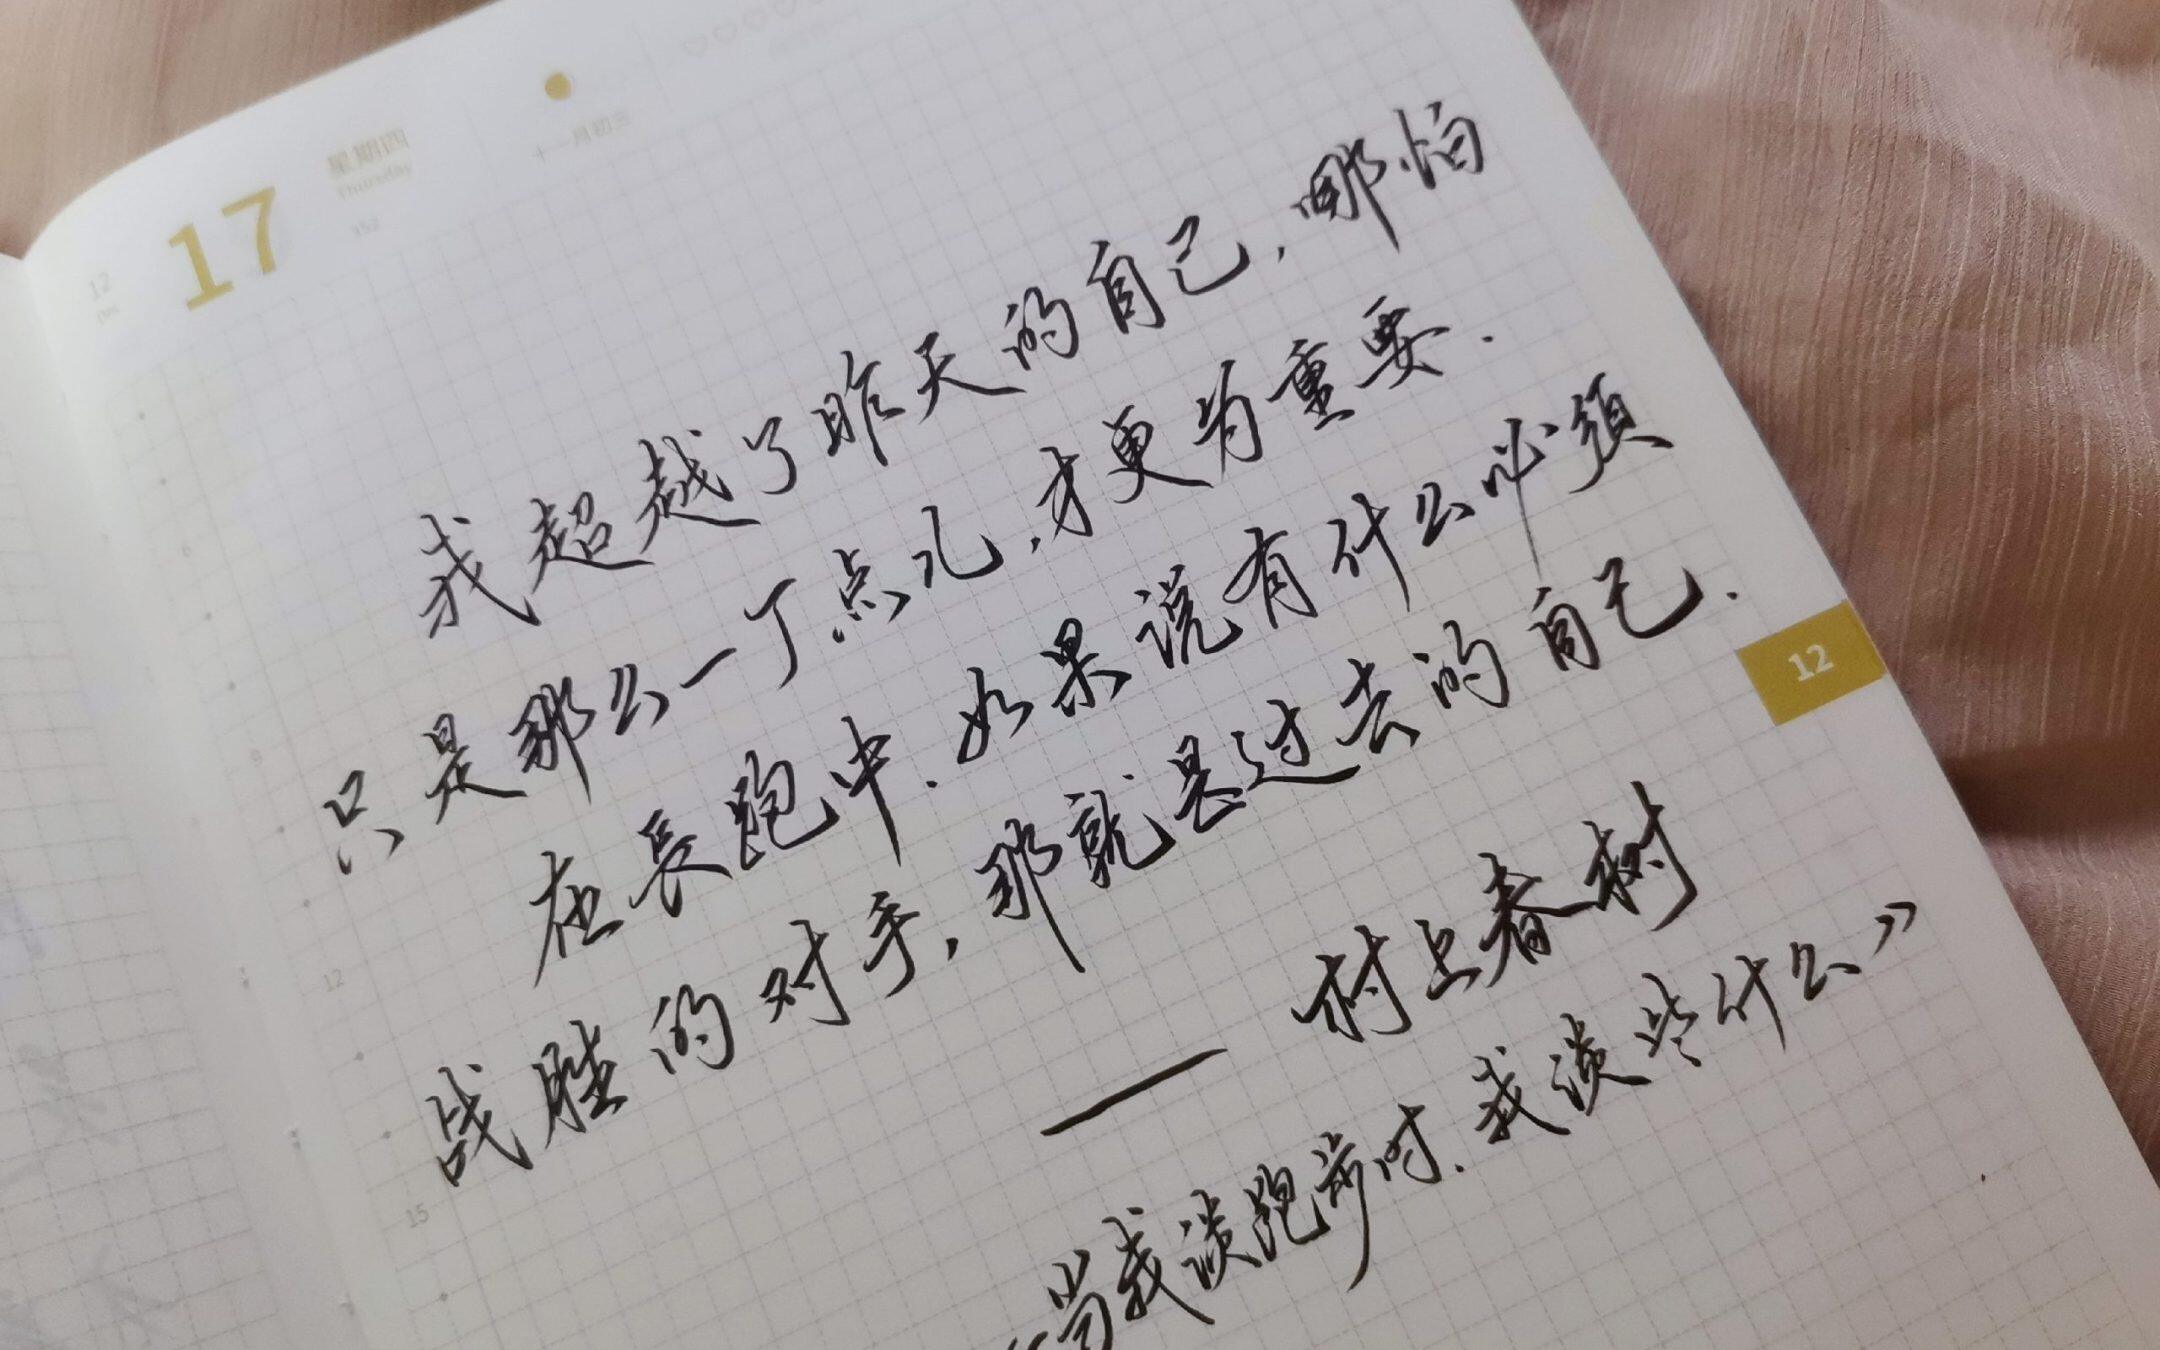 12
17
星期四
Thursday
352
十一月初三
我超越了昨天的自己,哪怕
只是那么一丁点儿,才更为重要.
在长跑中.如果说有什么必须
战胜的对手,那就是过去的自己.
—— 村上春树
《当我谈跑步时.我谈些什么》
12
12
15